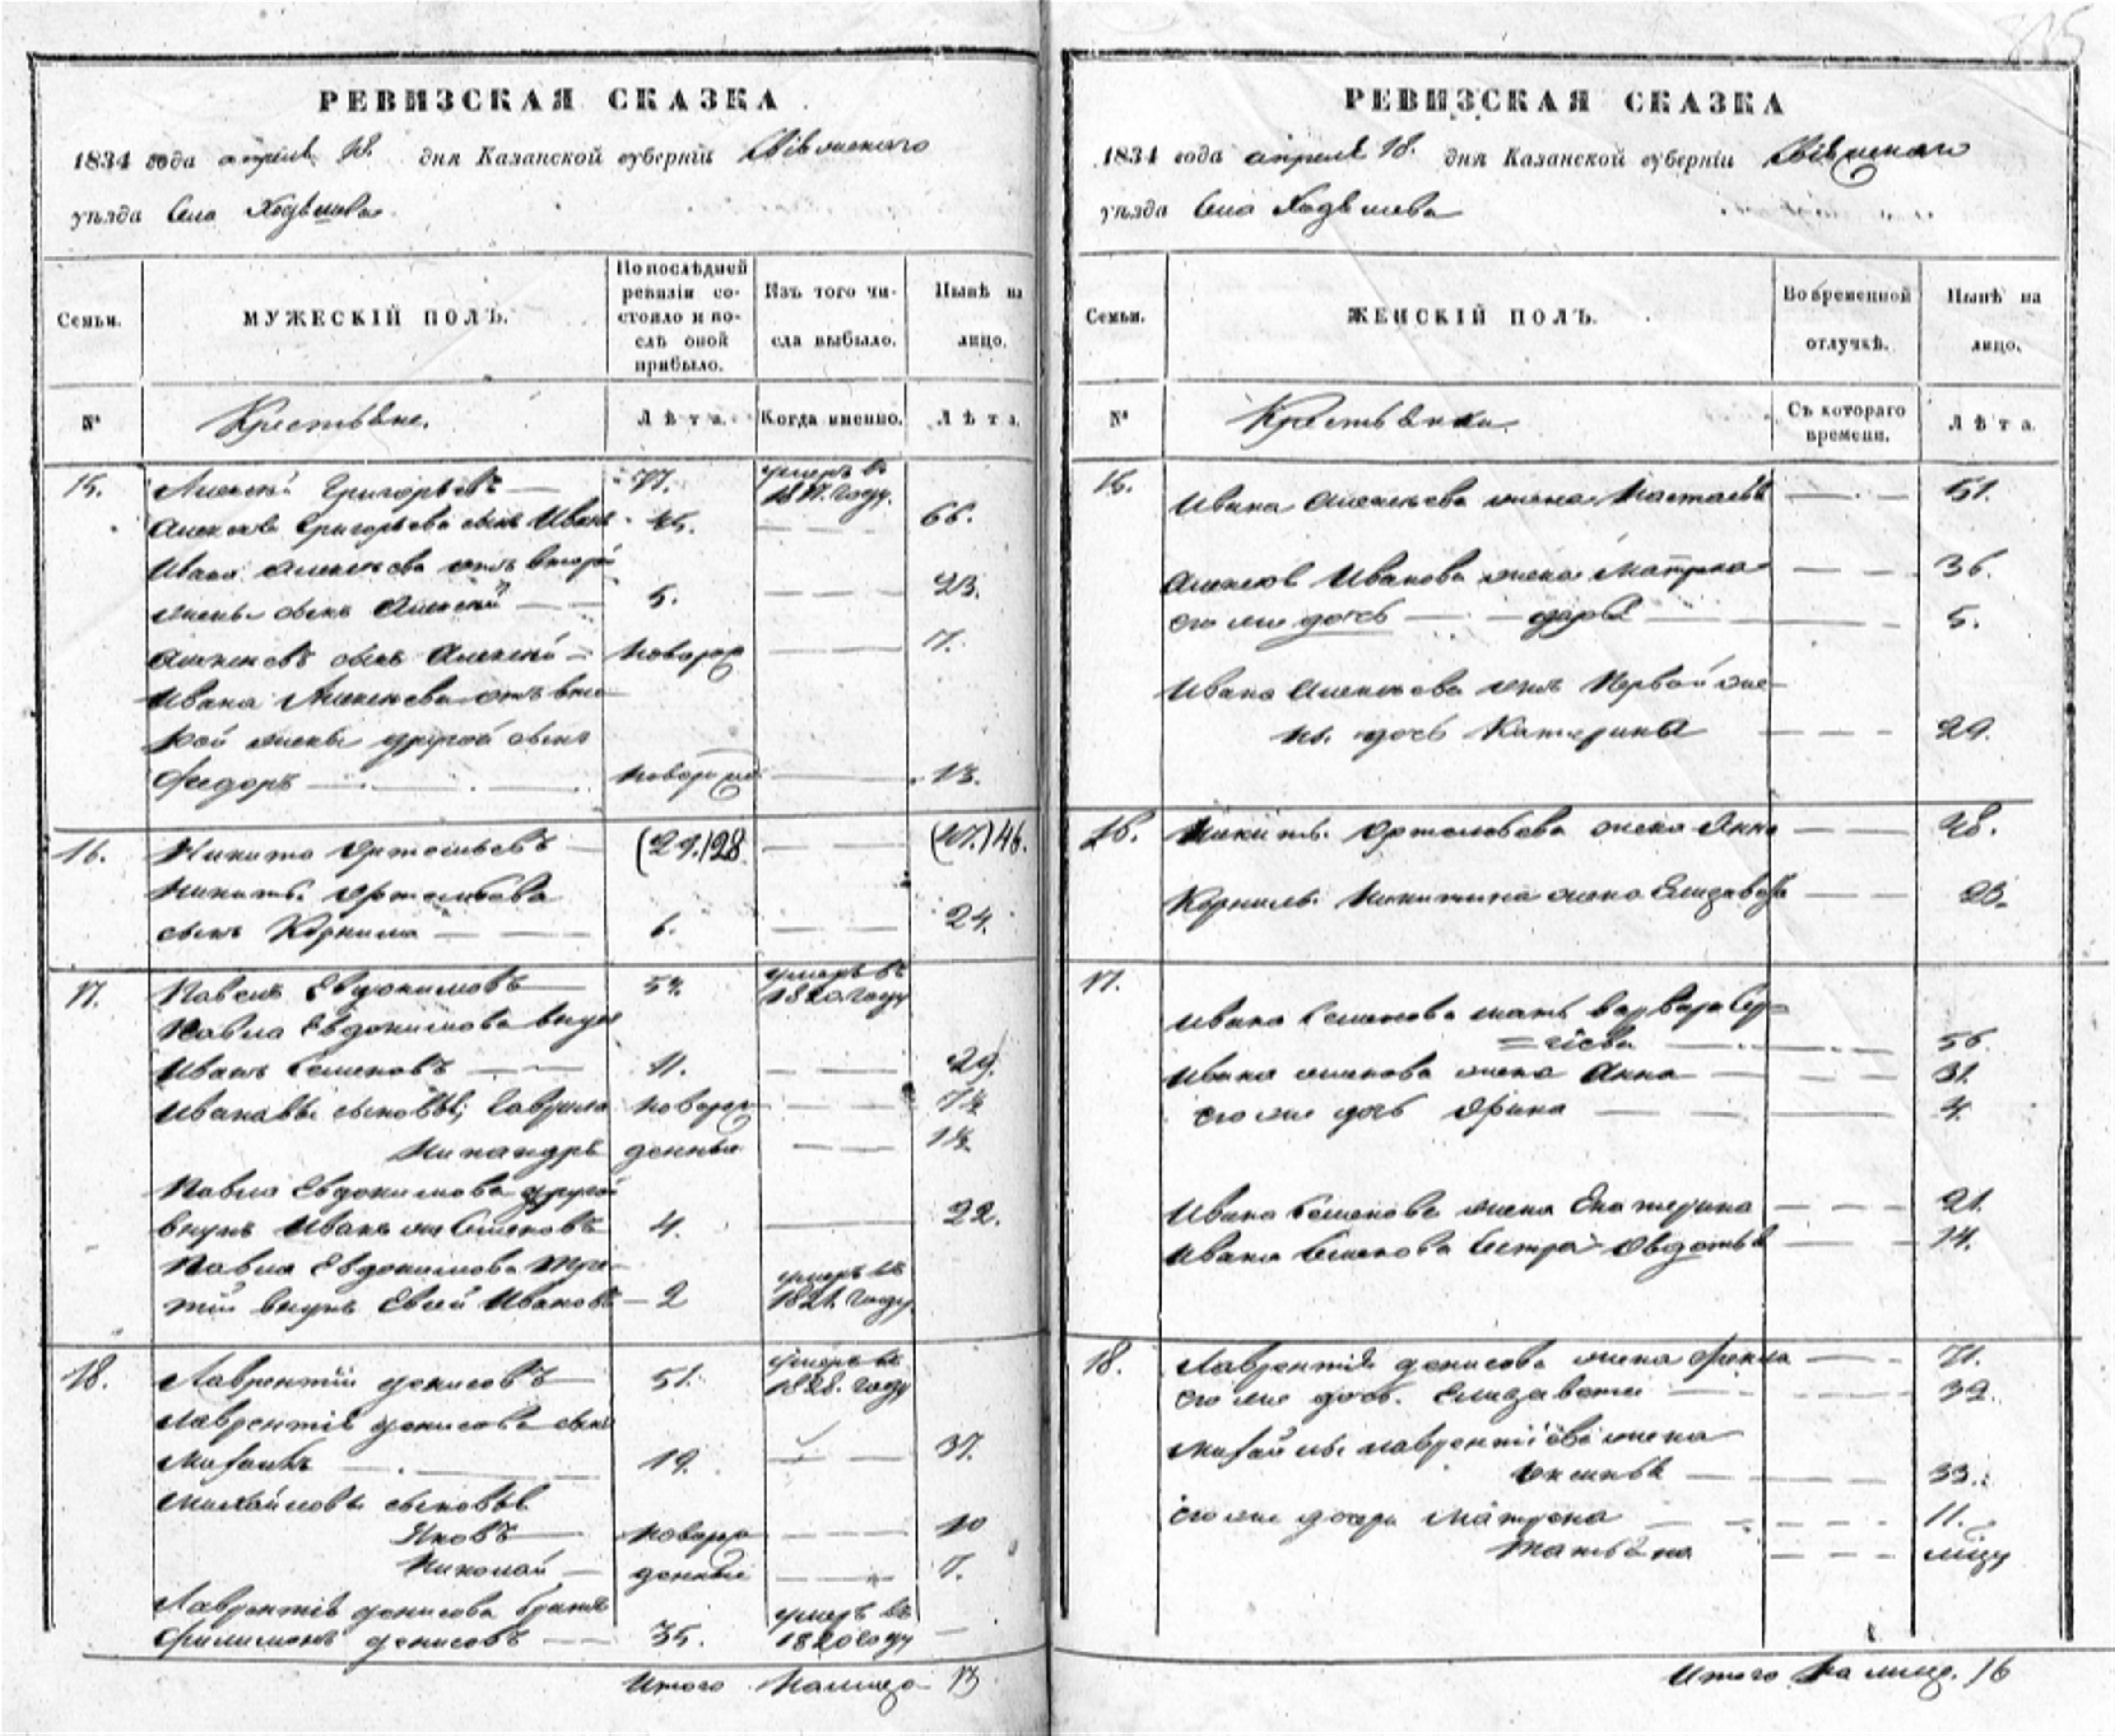 РЕВИЗСКАЯ СКАЗКА
1834 года апреля 18. дня Казанской губернiи
уѣзда Села Ходяшева
Семьи.
МУЖЕСКIЙ ПОЛЪ.
По послѣдней
ревизiи со-
стояло и по-
слѣ оной
прибыло.
Изъ того чи-
сла выбыло.
Нынѣ на
лицо.
№
Крестьяне.
Лѣта.
Когда именно.
Лѣта.
15. Алексей Григорьевъ 77. умеръ въ
1817. году.
Алексея Григорьева сынъ Иванъ 45. 66.
Ивана Алексеева отъ второй
жены сынъ Алексей 5. 23.
Алексеевъ сынъ Алексей новорож 7.
Ивана Алексеева отъ вто
рой жены другой сынъ
Федоръ новорож 13.
16. Никита Артемьевъ (29.)28 (47.)46.
Никиты Артемьева
сынъ Корнила 6. 24.
17. Павелъ Евдокимовъ умеръ въ
1820. году
Павла Евдокимова внукъ
Иванъ Семеновъ 11. 29.
Ивановы сыновья; Гаврила новорож
Никандръ денные
Павла Евдокимова другой
внукъ Иванъ же Семеновъ 4. 22.
Павла Евдокимова тре-
тий внукъ Евсей Ивановъ 2 умеръ въ
1821. году.
18. Лаврентий Денисовъ 51. умеръ въ
1828. году
Лаврентия Денисова сынъ
Михаилъ 19. 37.
Михайловы сыновья
Яковъ новорож 10
Николай денные 7.
Лаврентия Денисова братъ
Филимонъ Денисовъ 35. умеръ въ
1820 году
Итого налицо 13
РЕВИЗСКАЯ СКАЗКА
1834 года апреля 18. дня Казанской губернiи
уѣзда Села Ходяшева
Семьи.
ЖЕНСКIЙ ПОЛЪ.
Во временной
отлучкѣ.
Нынѣ на
лицо.
№
Крестьянки
Съ котораго
времени.
Лѣта.
15. Ивана Алексеева жена Настасья 51.
Алексея Иванова жена Матрена 36.
его же дочь Дарья 5.
Ивана Алексеева отъ Первой же-
ны дочь Катерина 29.
16. Никиты Артемьева жена Анна 48.
Корнилы Никитина жена Елизавета 23.
17.
Ивана Семенова мать Варвара Сер-
=гiева 56.
Ивана Семенова жена Анна 31.
его же дочь Арина 4.
Ивана Семенова жена Екатерина 21.
Ивана Семенова Сестра Авдотья 14.
18. Лаврентия Денисова жена Фекла 71.
его же дочь Елизавета 39.
Михайлы Лаврентiева жена
Аксинья 33.
его же дочери Матрена 11.
Татьяна
Итого на лицо. 16